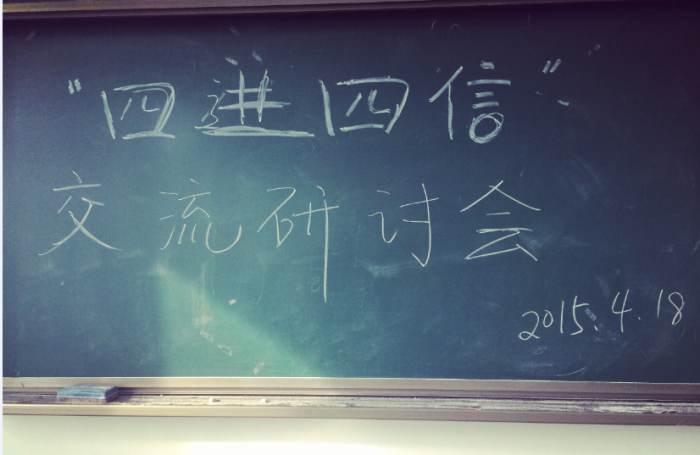 “四进四信”
交流研讨会
2015.4.18